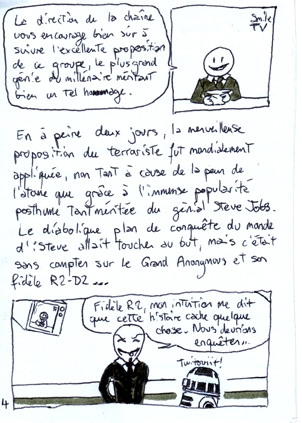 La direction de la chaîne
vous encourage bien sûr à
suivre l'excellente proposition
de ce groupe, le plus grand
génie du millénaire méritant
bien un tel hommage.
Smile
TV
En à peine deux jours, la merveilleuse
proposition du terroriste fut mondialement
appliquée, non tant à cause de la peur de
l'atome que grâce à l'immense popularité
posthume tant méritée du génial Steve Jobs.
Le diabolique plan de conquête du monde
d'iSteve allait toucher au but, mais c'était
sans compter sur le Grand Anonymous et son
fidèle R2-D2...
Fidèle R2, mon intuition me dit
que cette histoire cache quelque
chose. Nous devrions
enquêter...
Tuituuiit!
4